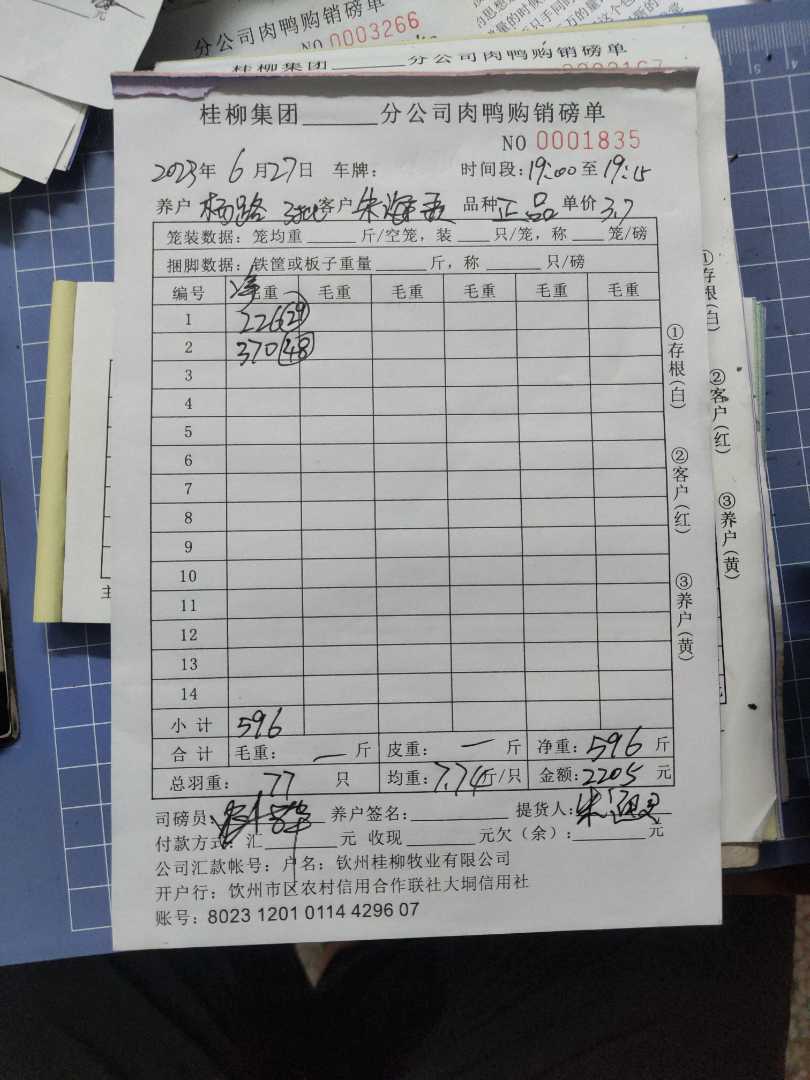 元
分公司肉鸭购销磅单
NO 0003266
桂柳集团______分公司肉鸭购销磅单
桂柳集团______分公司肉鸭购销磅单
NO 0001835
2023年6月27日 车牌: 时间段:19:00至19:15
养户 杨路 3批 客户 朱海 品种 正品 单价 3.7
笼装数据: 笼均重______斤/空笼, 装____只/笼, 称____笼/磅
捆脚数据: 铁筐或板子重量______斤, 称______只/磅
编号 净 毛重 毛重 毛重 毛重 毛重 毛重
1 226 29
2 370 48
3
4
5
6
7
8
9
10
11
12
13
14
小计 596
合计 毛重: — 斤 皮重: — 斤 净重: 596 斤
总羽重: 77 只 均重: 7.74斤/只 金额: 2205 元
司磅员: 养户签名:________ 提货人: 朱
付款方式: 汇________元 收现________元欠(余):________元
公司汇款帐号: 户名: 钦州桂柳牧业有限公司
开户行: 钦州市区农村信用合作联社大垌信用社
账号: 8023 1201 0114 4296 07
①存根(白)
②客户(红)
③养户(黄)
①存根(白)
②客户(红)
③养户(黄)